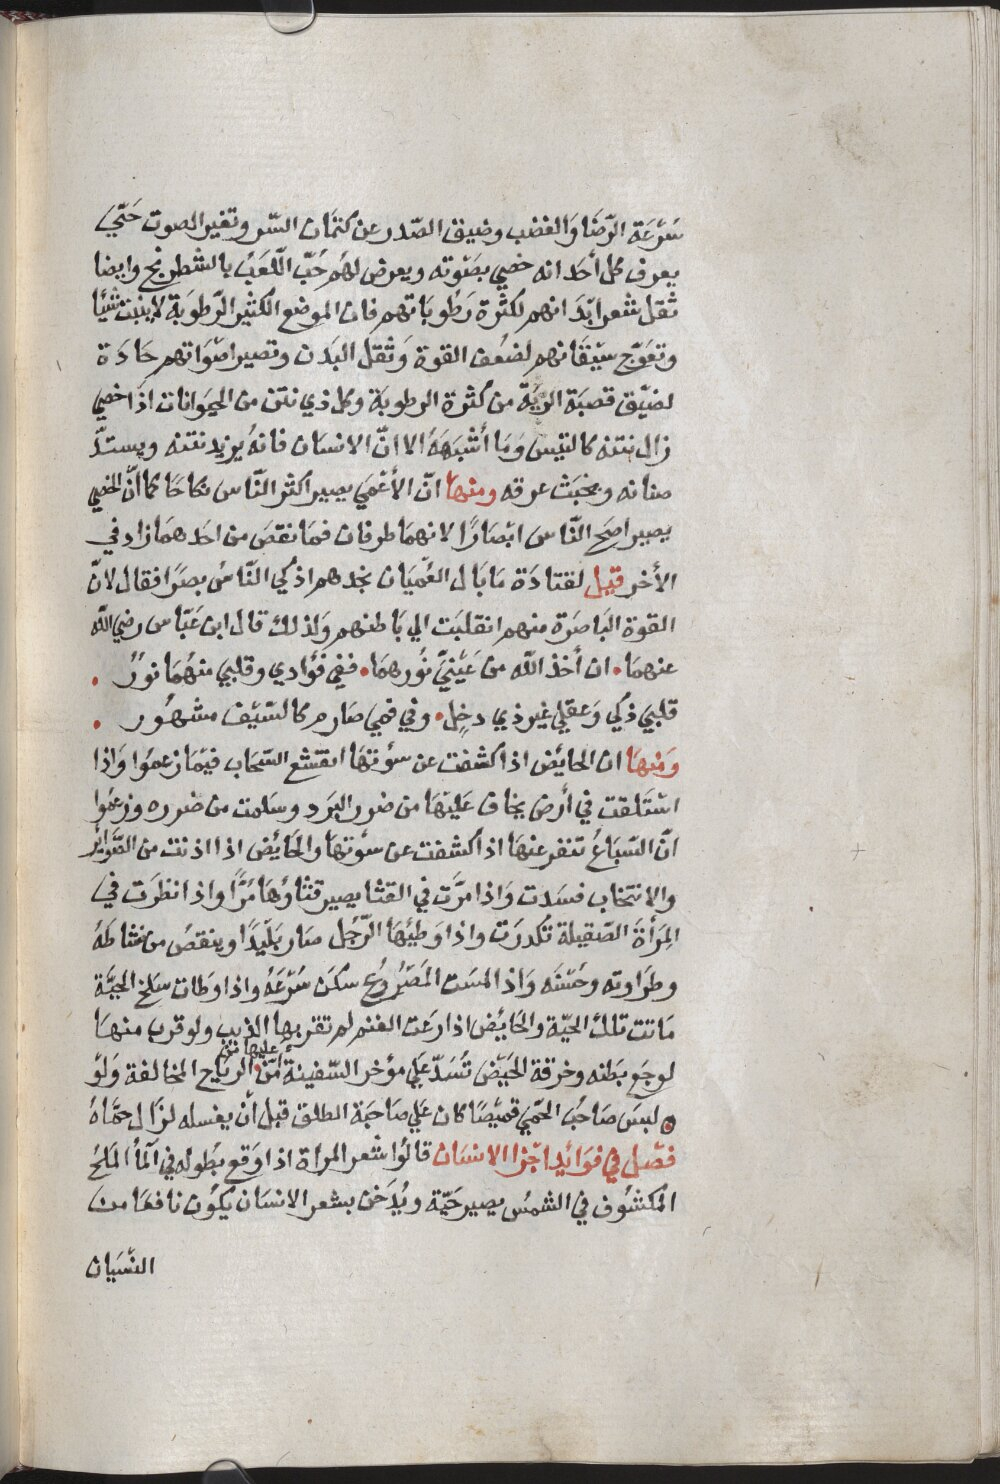 سُرْعَة الرّضَا وَالغضب وضيق الصّدر عن كتمَان السّر وتغير الصوت حَتّي
يعرف كل أحَد انه خصي بصَوته ويعرض لهُم حُبّ اللّعَبُ بالشطرنج وايضا
ثقل شعر ابدَانهم لكثْرة رَطُوبَاتهم فان الموضع الكثير الرّطوبَة لا ينبت شيًا
وتعَوّج سيْقَانهم لضعُف القوة وَثقل البَدن وتصير اصْوَاتهم حَادَة
لضيّق قصبَة الريَّة من كثرة الرطوبَة وكل ذي نتن من الحيَوانات اذا خصي
زال نتنه كالتيْس وَمَا أشْبَهَهُ الا انّ الانسَان فانهُ يزيد نتنه ويستدّ
صنانه ويخبَث عرقه ومنهَا انّ الأعْمَي يصير اكثر النّاس نكاحَا كما انّ الخصي
يصير اصَح النّاس ابْصَارًا لانهمَا طرفان فمَا نقصَ من احَدهمَا زاد في
الأخر قيْل لقتادَة مَا بَال العُميَان نجدهم اذكي النّاسُ بصَرًا فقال لانّ
القوة البَاصَرَة منهم انقلبَت الي بَاطنهم وَلذلك قال ابن عَبّاس رضي اللّه
عنهمَا • ان أخذ اللّه من عَيْنيَّ نُورهمَا • ففي فؤادي وقلبي منهُمَا نورٌ •
قلبيَ ذكي وَعقلي غير ذي دخِل • وفي فمي صَارم كالسّيْف مشهُور •
وَمنهَا ان الحايَض اذا كشفت عن سوْتهَا انقشع السّحَاب فيمَا زعمُوا وَاذا
اسْتَلقت في أرض يخاف عَليْهَا من ضرر البَرد وسَلمت من ضرره وزعَمُوا
انّ السّبَاعُ تنفر عنهَا اذا كشفت عن سوْتهَا والحَائيض اذا اذنت من الصَّوَاير
والانتخَاب فسَدت وَاذا مَرَّت في القثا يصير قثاؤهَا مُرًّا واذا نظرَت في
المرَأةَ الصّقيلة تكدرَت واذا وَطيْهَا الرّجُل صَار بَلَيدًا وينقصُ من نشاطهُ
وطرَاوته وحسْنَه وَاذا لمسَت المَصَرُوع سكَن سُرْعَهُ واذا وَطات سَلخ الحيَّة
مَاتت تلك الحيّة والحَائيض اذا رعَت الغنم لم تقربها الذيب ولو قرب منهَا
لوجَع بَطنه وخرقة الحَيْض تُسَدّ عَلَي مؤخر السّفينة امّن عليها من الريَاح المخالفة وَلوْ
لبسَ صَاحبُ الحمّي قميْصًا كان عَلي صَاحبَة الطلق قبل أن يغسله لزال حمَّاهُ
فصْل في فوَائد اجْزا الانسَان قالُوا شعر المراة اذا وَقع بطُوله في المَأ المَالحُ
المكشُوف في الشمسُ يصير حَيّة ويُدَخن بشعر الانسَان يكوُن نافعًا من
النسْيَان